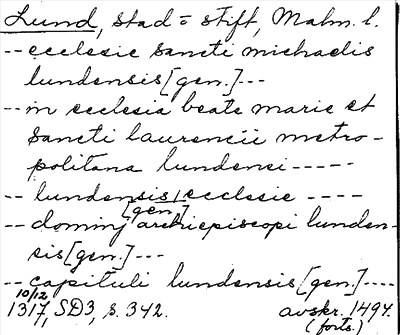 Lund, stad = stift, Malm. l.
-- ecclesie sancti michaelis
lundensis [gen.] ---
-- in ecclesia beate marie et
sancti laurencii metro-
politana lundensi -----
-- lundensis [gen.] / ecclesie ----
-- dominj archiepiscopi lunden-
sis [gen.] ---
-- capituli lundensis [gen.] ----
10/12 1317, SD3, s. 342. avskr. 1494.
(forts.)